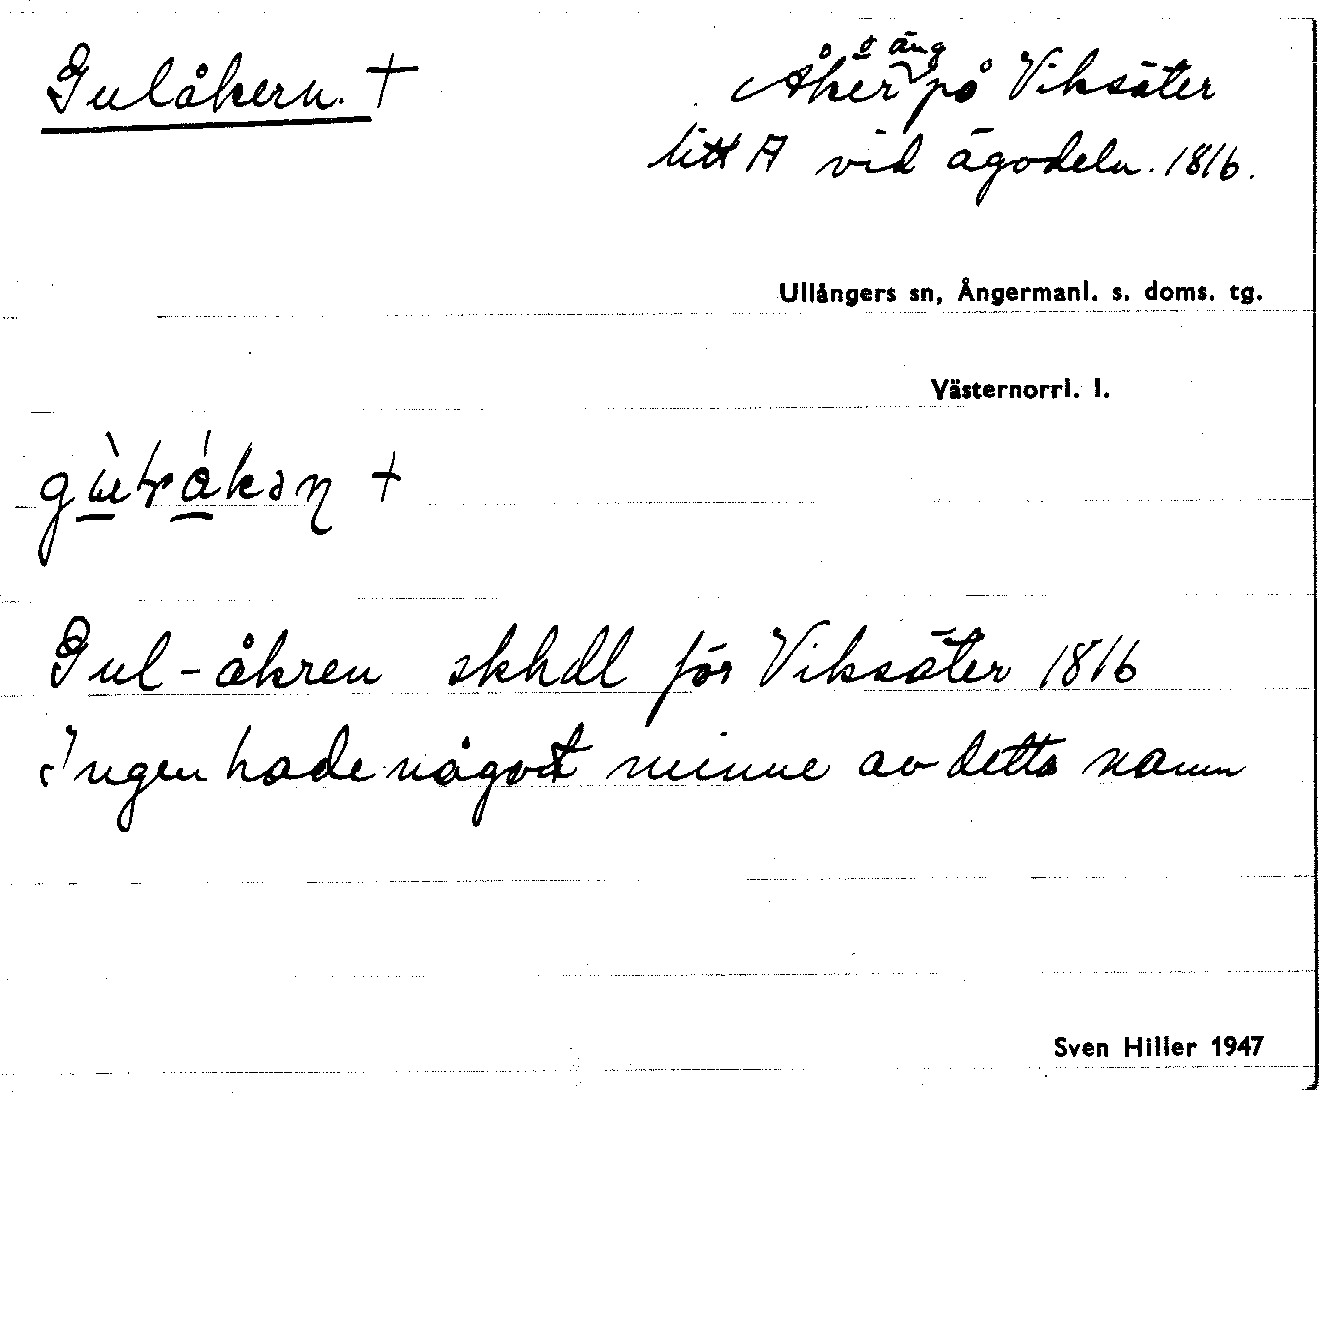 Gulåkern. +
Åker o äng på Viksäter
litt A vid ägodeln. 1816.
Ullångers sn, Ångermanl. s. doms. tg.
Västernorrl. l.
Gul-åkren skhdl för Viksäter 1816
Ingen hade något minne av detta namn
Sven Hiller 1947